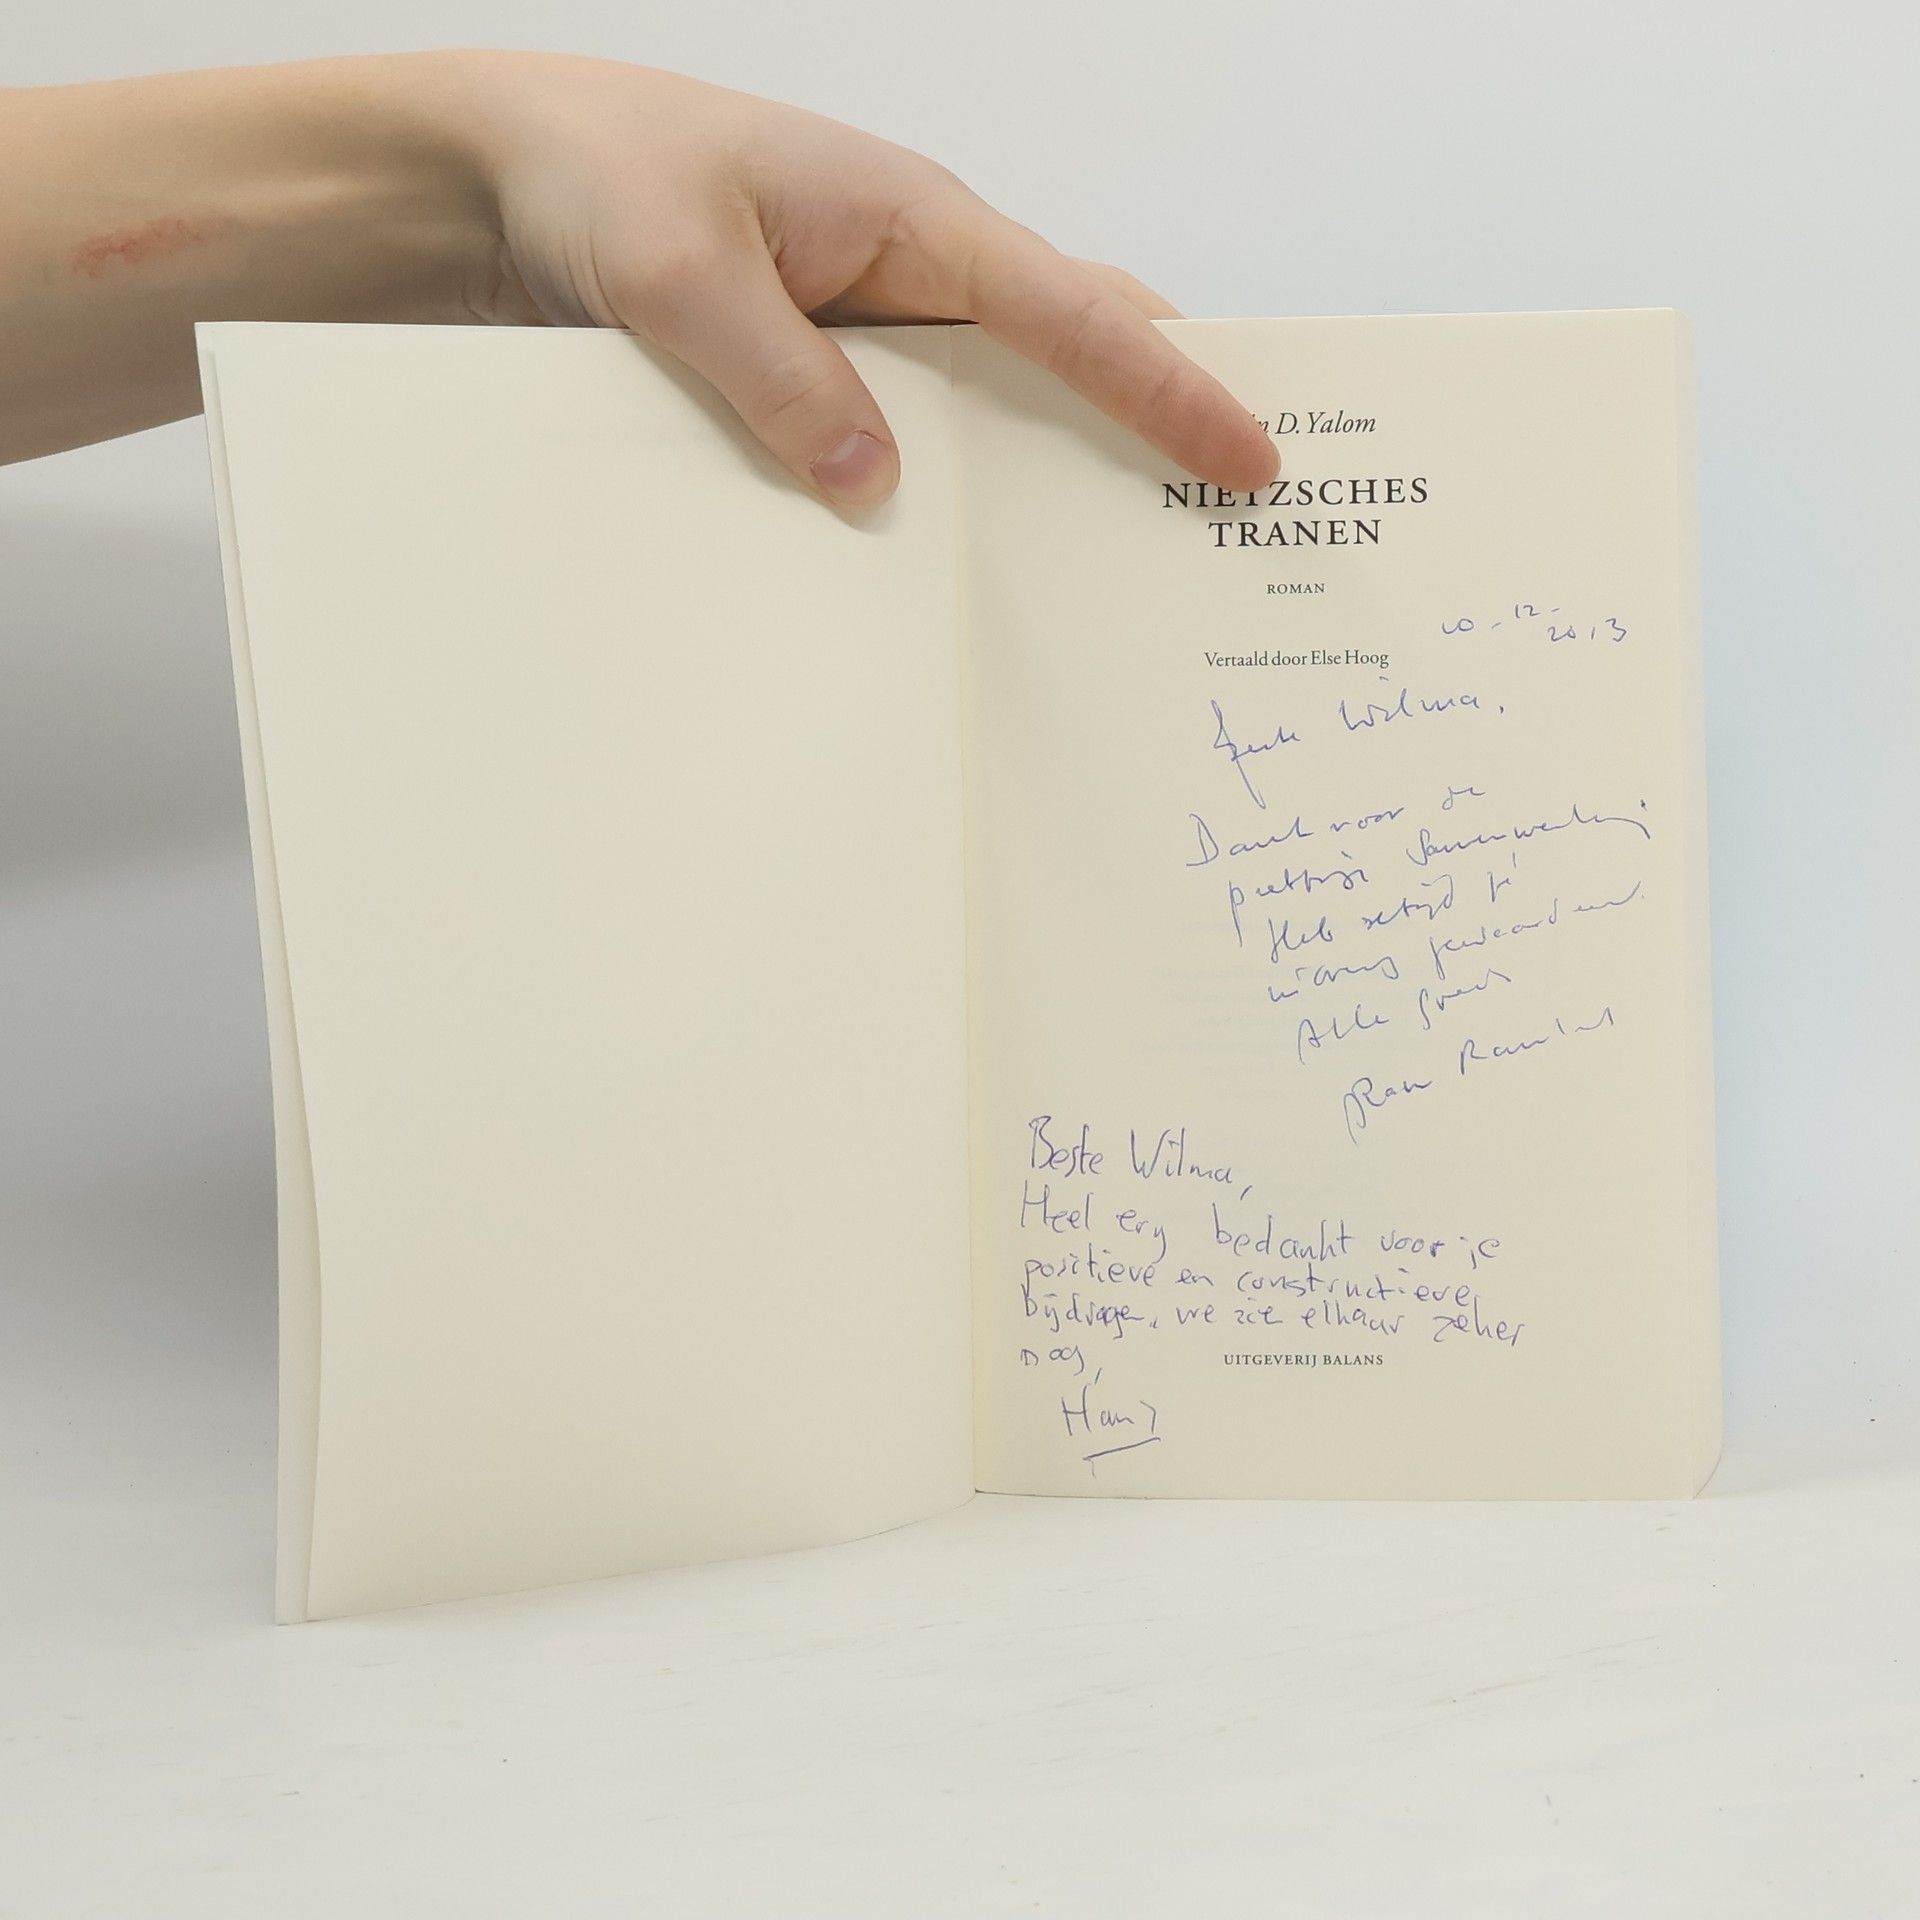 n D. Yalom
NIETZSCHES
TRANEN
ROMAN
10-12-
2013
Vertaald door Else Hoog
Beste Wilma,
Dank voor de
prettige samenwerking.
Heb altijd je
inbreng gewaardeerd.
Alle goeds
Beste Wilma,
Heel erg bedankt voor je
positieve en constructieve
bijdragen, we zien elkaar zeker
nog,
UITGEVERIJ BALANS
Hans